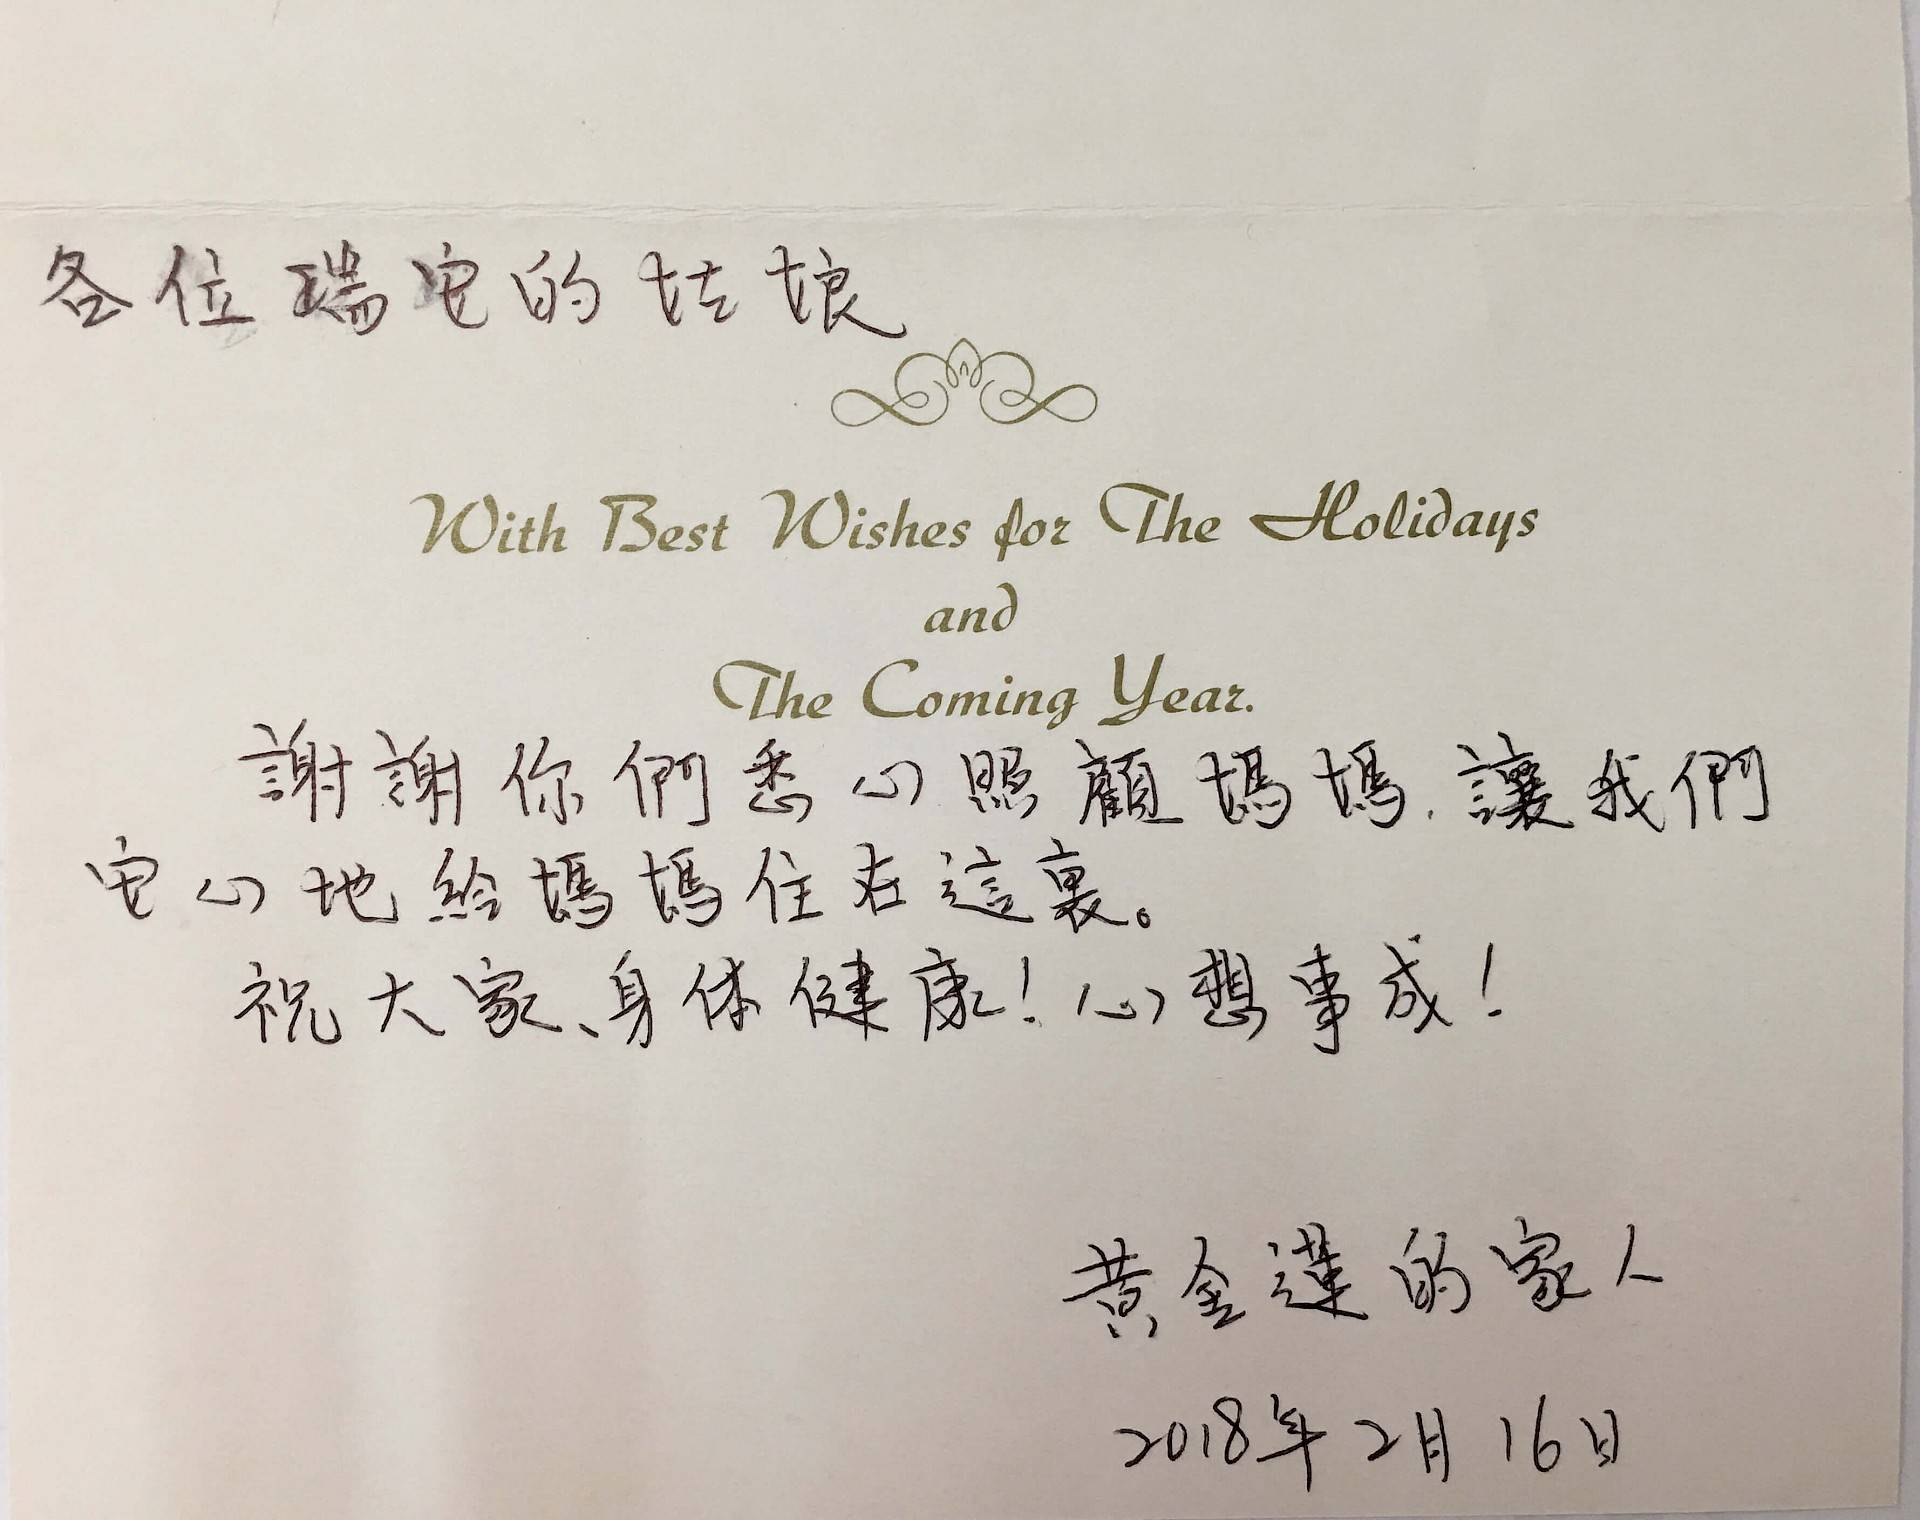 各位瑞安的姑娘
With Best Wishes for The Holidays
and
The Coming Year.
謝謝你們悉心照顧媽媽，讓我們
安心地給媽媽住在這裏。
祝大家、身体健康！心想事成！
黄金蓮的家人
2018年2月16日